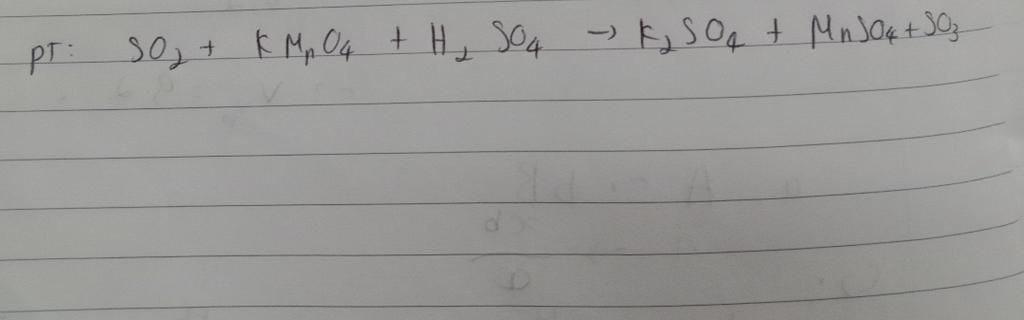 PT: SO₂ + KMnO₄ + H₂ SO₄ → K₂SO₄ + MnSO₄+SO₃